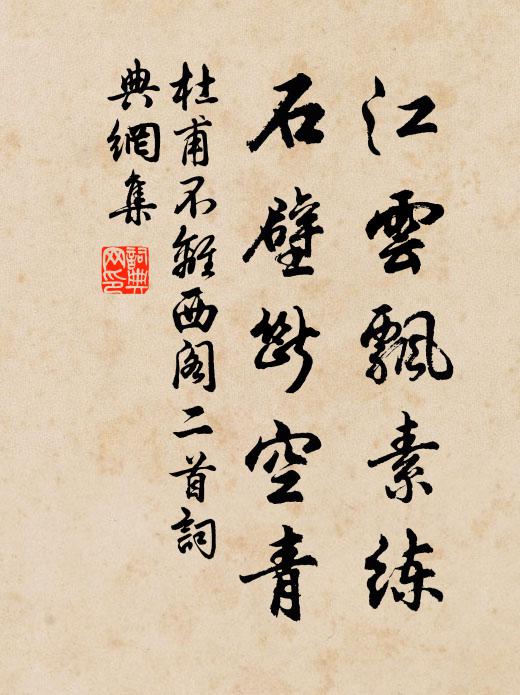 江雲飄素練
石壁斷空青
杜甫不離西阁二首詞
典網集
詞典
网印